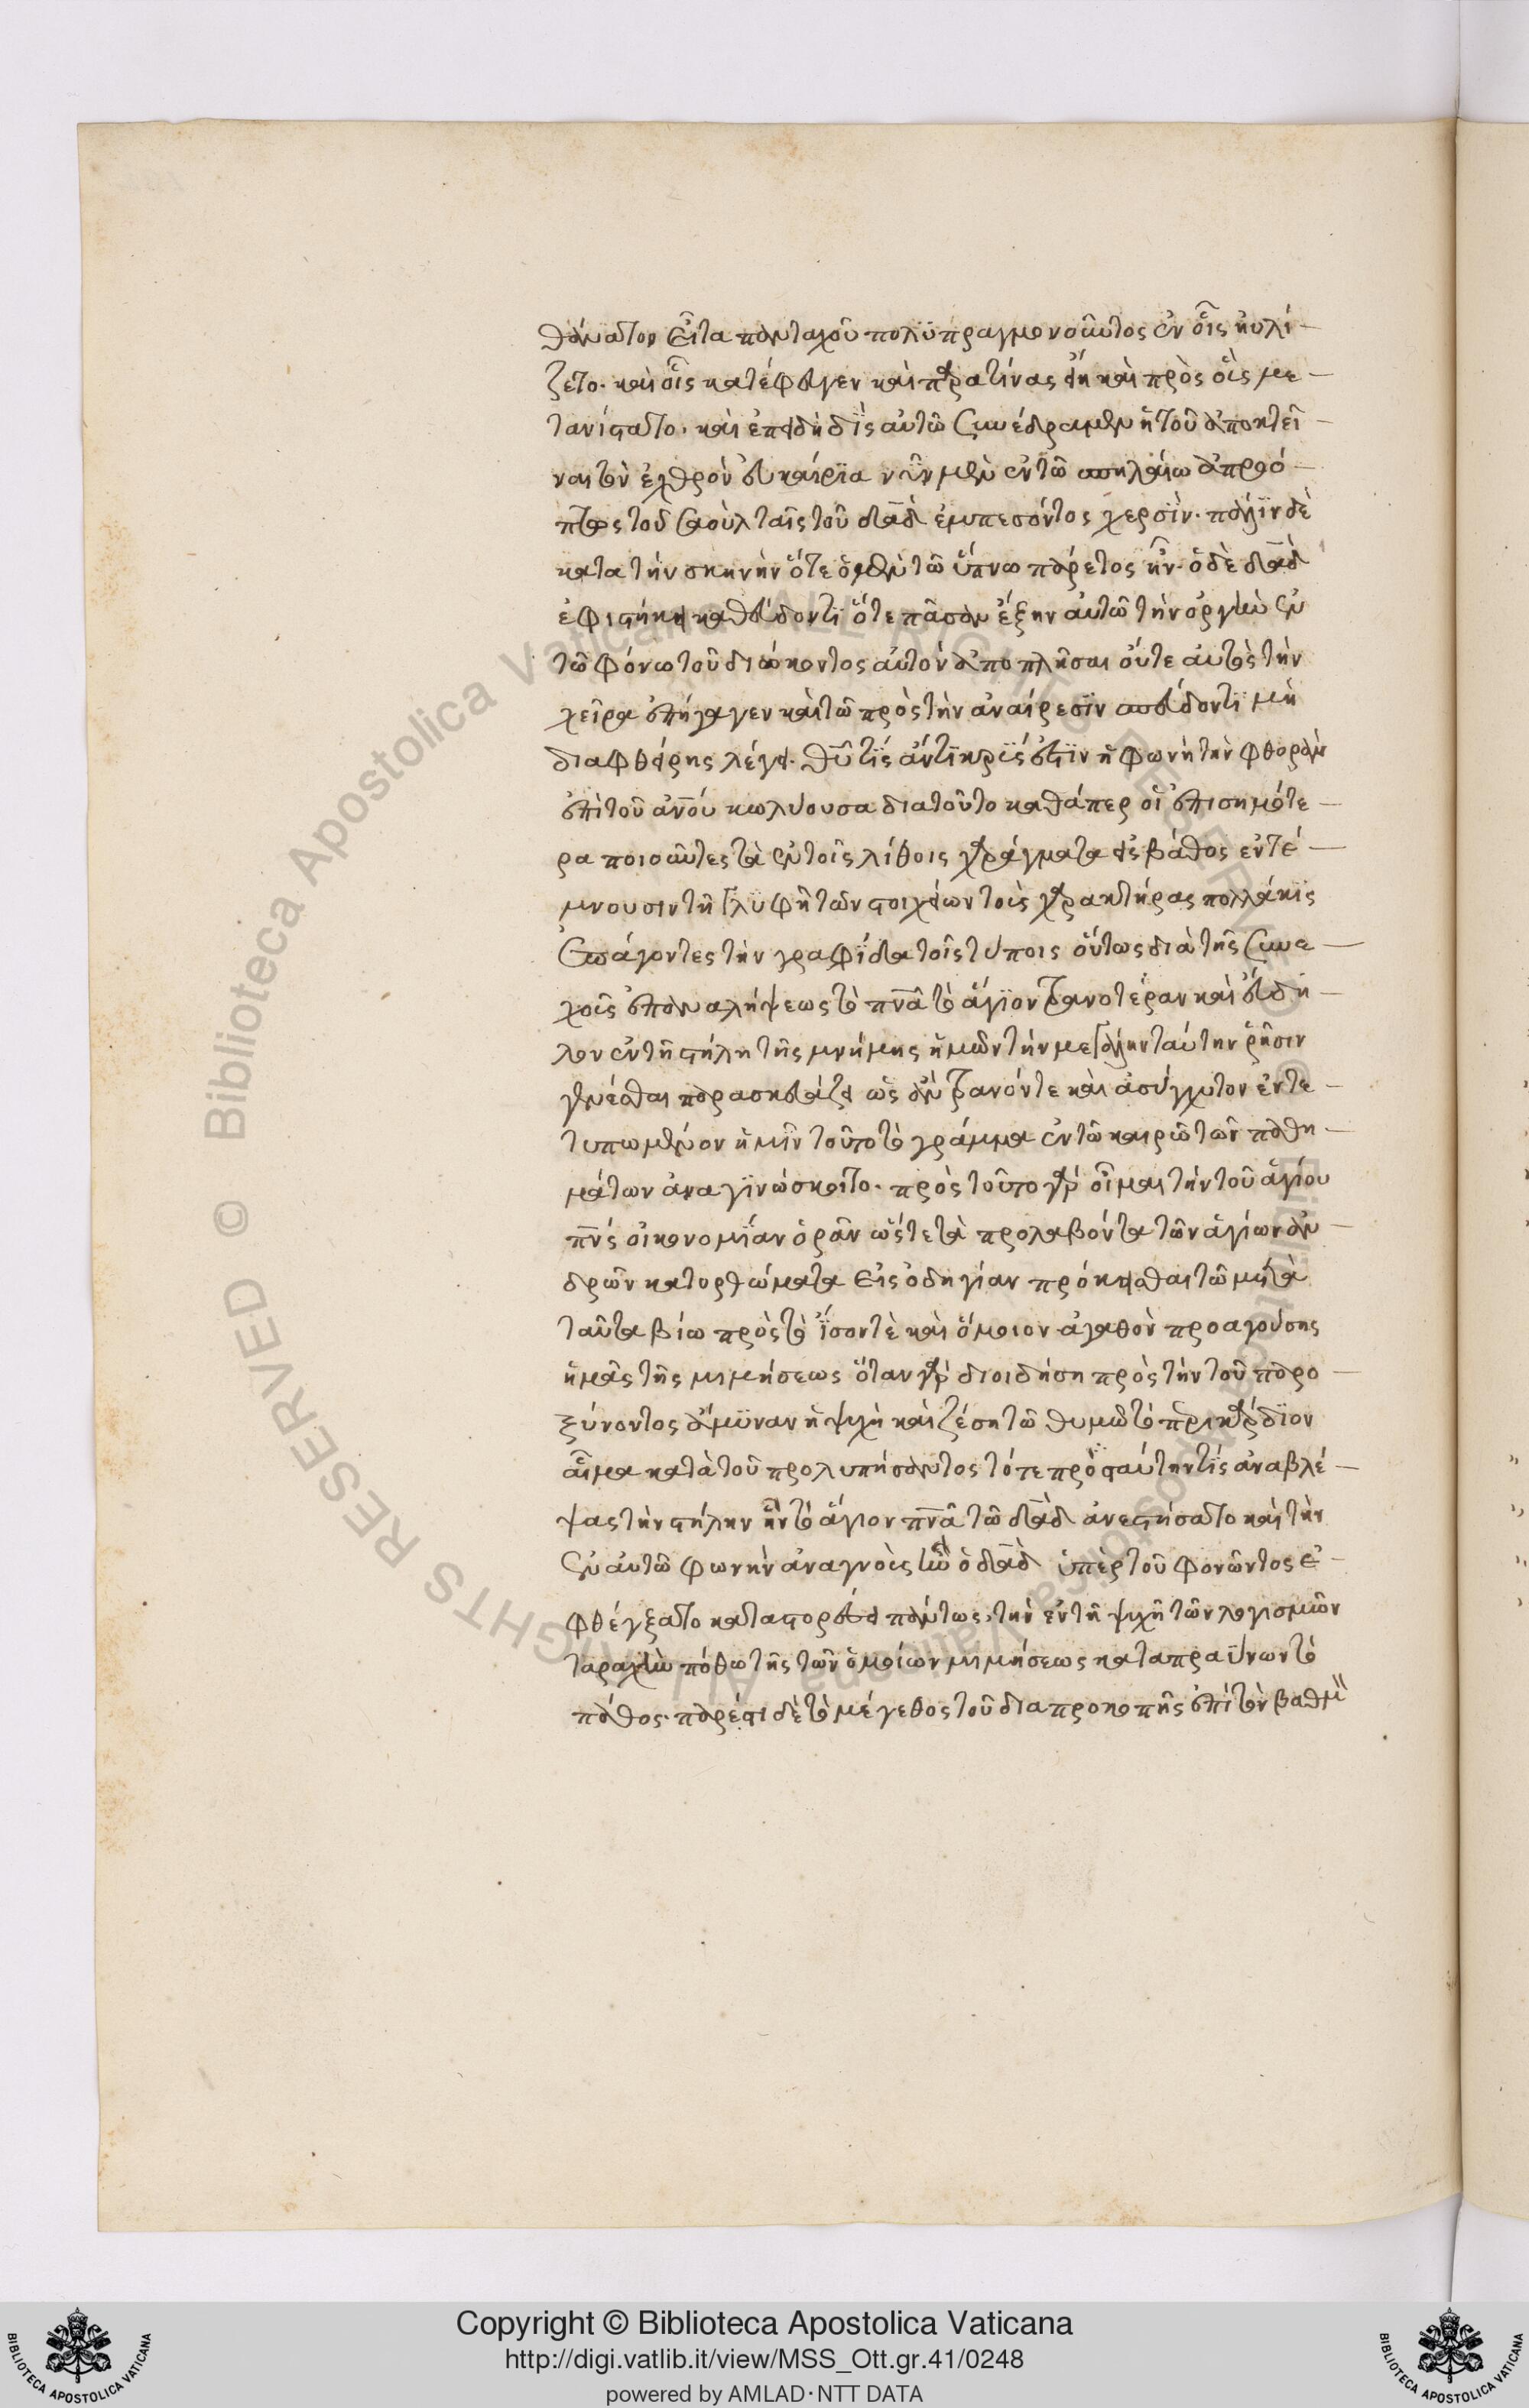 θάνατον εἶτα πανταχοῦ πολυπραγμονοῦντος ἐν οἷς ηὐλί-
ζετο. καὶ οἷς κατέφευγεν καὶ παρὰ τίνας ἤει καὶ πρὸς οὓς με-
τανίστατο. καὶ ἐπειδὴ δὶς αὐτῶ συνέδραμεν ἡ τοῦ ἀποκτεῖ-
ναι τὸν ἐχθρὸν εὐκαιρία νῦν μὲν ἐν τῶ σπηλαίω ἀπροό-
πτως τοῦ σαοὺλ ταῖς τοῦ δαδ ἐμπεσόντος χερσὶν. πάλιν δὲ
κατὰ τὴν σκηνὴν ὅτε ὁ μὲν τῶ ὕπνω πάρετος ἦν. ὁ δὲ δαδ
ἐφιστήκει καθεύδοντι ὅτε πᾶσαν ἐξῆν αὐτῶ τὴν ὀργὴν ἐν
τῶ φόνω τοῦ διώκοντος αὐτὸν ἀποπλῆσαι οὔτε αὐτὸς τὴν
χεῖρα ἐπήγαγεν καὶ τῶ πρὸς τὴν ἀναίρεσιν σπεύδοντι μὴ
διαφθείρης λέγει. θυ τίς ἀντικρύς ἐστιν ἡ φωνὴ τὴν φθορὰν
ἐπὶ τοῦ ἀνου κωλύουσα διατοῦτο καθάπερ οἱ ἐπισημότε-
ρα ποιοῦντες τὰ ἐν τοῖς λίθοις χαράγματα εἰς βάθος ἐντέ-
μνουσιν τῆ γλυφῆ τῶν στοιχείων τοὺς χαρακτῆρας πολλάκις
ἐπάγοντες τὴν γραφίδα τοῖς τύποις οὕτως διὰ τῆς συνε-
χοῦς ἐπαναλήψεως τὸ πνα τὸ ἅγιον τρανοτέραν καὶ εὔδη-
λον ἐν τῆ στήλη τῆς μνήμης ἡμῶν τὴν μεγάλην ταύτην ῥῆσιν
γενέσθαι παρασκευάζει ὡς ἂν τρανόν τε καὶ ἀσύγχυτον ἐντε-
τυπωμένον ἡμῖν τοῦτο τὸ γράμμα ἐν τῶ καιρῶ τῶν παθη-
μάτων ἀναγινώσκοιτο. πρὸς τοῦτο γὰρ οἶμαι τὴν τοῦ ἁγίου
πνς οἰκονομίαν ὁρᾶν ὥστε τὰ προλαβόντα τῶν ἁγίων ἀν-
δρῶν κατορθώματα εἰς ὁδηγίαν πρόκεισθαι τῶ μετὰ
ταῦτα βίω πρὸς τὸ ἴσον τὲ καὶ ὅμοιον ἀγαθὸν προαγούσης
ἡμᾶς τῆς μιμήσεως ὅταν γὰρ διοιδήση πρὸς τὴν τοῦ παρο-
ξύνοντος ἄμυναν ἡ ψυχὴ καὶ ζέση τῶ θυμῶ τὸ περικάρδιον
αἷμα κατὰ τοῦ προλυπήσαντος τότε πρὸς ταύτην τίς ἀναβλέ-
ψας τὴν στήλην ἣν τὸ ἅγιον πνα τῶ δαδ ἀνεστήσατο καὶ τὴν
ἐν αὐτῶ φωνὴν ἀναγνοὺς ἣν ὁ δαδ ὑπὲρ τοῦ φονῶντος ἐ-
φθέγξατο καταστορεύει πάντως. τὴν ἐν τῆ ψυχῆ τῶν λογισμῶν
ταραχὴν πόθω τῆς τῶν ὁμοίων μιμήσεως καταπραΰνων τὸ
πάθος. πάρεστι δὲ τὸ μέγεθος τοῦ διαπροκοπῆς ἐπὶ τὸν βαθμὸν
Copyright © Biblioteca Apostolica Vaticana
http://digi.vatlib.it/view/MSS_Ott.gr.41/0248
powered by AMLAD·NTT DATA